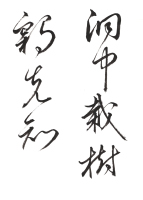 洞中栽樹
鶴先知